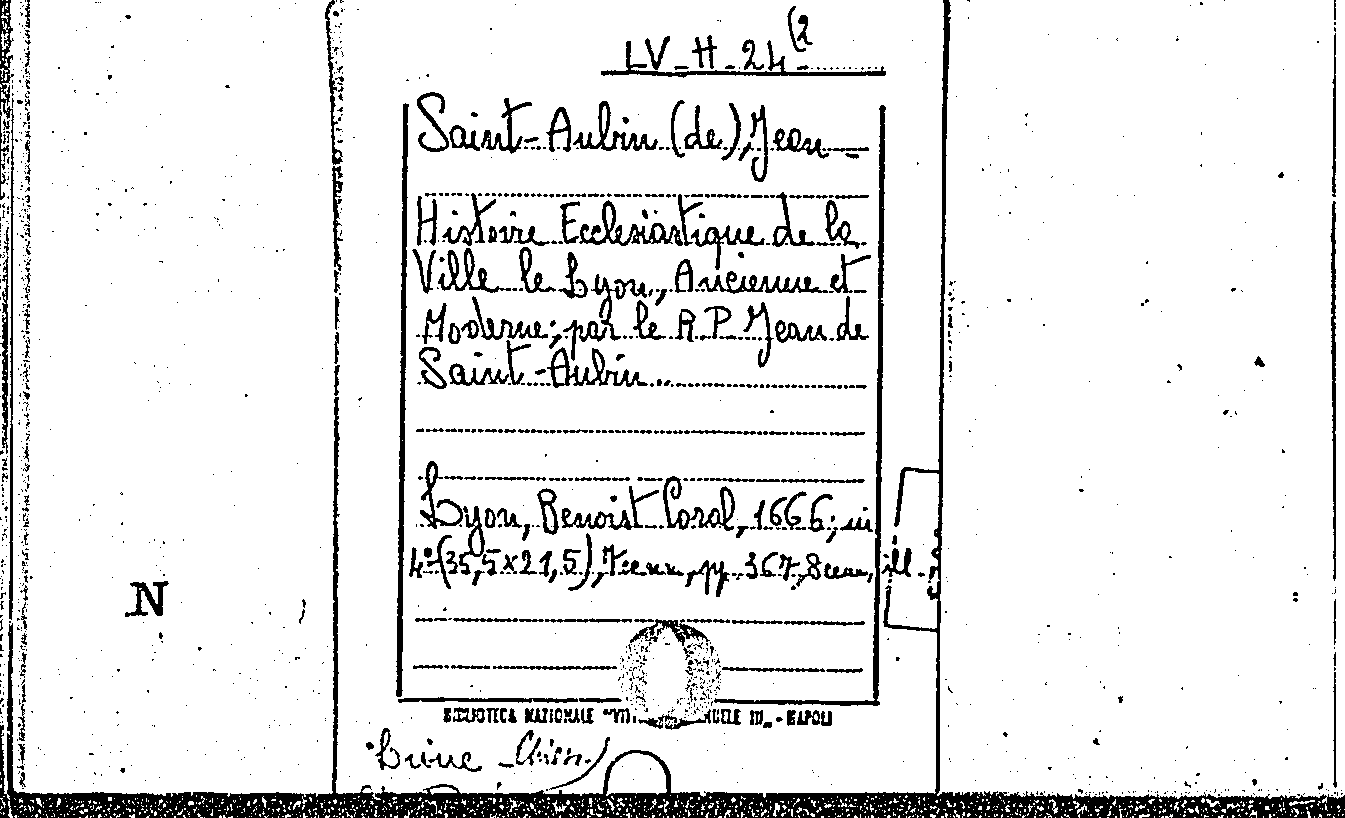 LV-H-24(2
Saint-Aubin (de), Jean -
Histoire Ecclesiastique de la
Ville le Lyon, Ancienne et
Moderne; par le R.P. Jean de
Saint-Aubin..
Lyon, Benoist Coral, 1666; in
4° (35,5x21,5), 7 cc.nn., pp. 367, 8 cc.nn, ill.
N
BIBLIOTECA NAZIONALE "VITT NUELE III" - NAPOLI